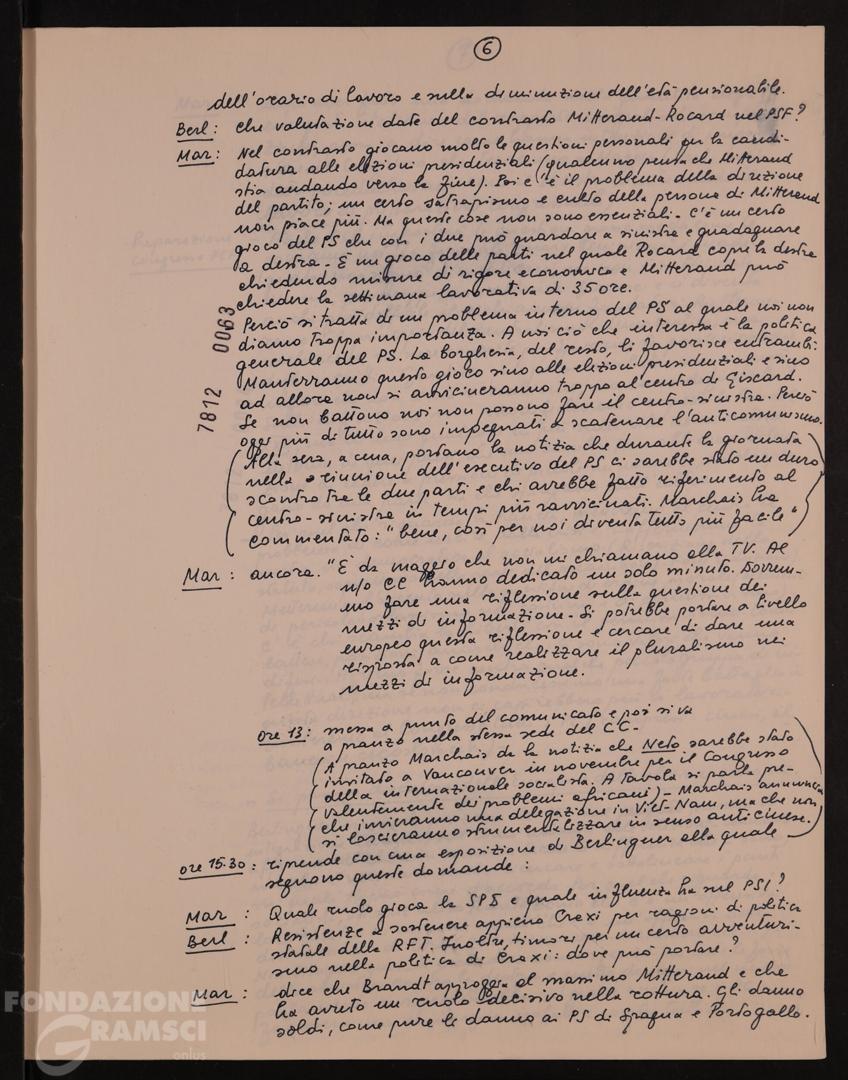 6
dell'orario di lavoro e sulla diminuzione dell'età pensionabile.
Berl: che valutazione date del contrasto Mitterand-Rocard nel PSF?
Mar: Nel contrasto giocano molto le questioni personali per la candi-
datura alle elezioni presidenziali (qualcuno pensa che Mitterand
stia andando verso la fine). Poi c'è il problema della direzione
del partito; un certo satrapismo e culto della persona di Mitterand
non piace più. Ma queste cose non sono essenziali. C'è un certo
gioco del PS che con i due può guardare a sinistra e guadagnare
a destra. È un gioco delle parti nel quale Rocard copre la destra
chiedendo misure di rigore economico e Mitterand può
chiedere la settimana lavorativa di 35 ore.
Perciò si tratta di un problema interno del PS al quale noi non
diamo troppa importanza. A noi ciò che interessa è la politica
generale del PS. La borghesia, del resto, li favorisce entrambi.
Manterranno questo gioco sino alle elezioni presidenziali e sino
ad allora non si avvicineranno troppo al centro di Giscard.
Se non battono noi non possono fare il centro-sinistra. Perciò
oggi più di tutto sono impegnati a scatenare l'anticomunismo.
(Alla sera, a cena, portano la notizia che durante la giornata
nella riunione dell'esecutivo del PS ci sarebbe stato un duro
scontro tra le due parti e chi avrebbe fatto riferimento al
centro-sinistra in tempi più ravvicinati. Marchais ha
commentato: "bene, così per noi diventa tutto più facile")
Mar: ancora. "È da maggio che non mi chiamano alla TV. Al
n/o CC hanno dedicato un solo minuto. Dovrem-
mo fare una riflessione sulla questione dei
mezzi di informazione. Si potrebbe portare a livello
europeo questa riflessione e cercare di dare una
risposta a come realizzare il pluralismo nei
mezzi di informazione.
ore 13: messa a punto del comunicato e poi si va
a pranzo nella stessa sede del CC.
(A pranzo Marchais dà la notizia che Neto sarebbe stato
invitato a Vancouver in novembre per il Congresso
della internazionale socialista. A tavola si parla pre-
valentemente dei problemi africani) - Marchais annuncia
che invieranno una delegazione in Viet-Nam, ma che non
si lascieranno strumentalizzare in senso anticinese.)
ore 15.30: riprende con una esposizione di Berlinguer alla quale
seguono queste domande:
Mar: Quale ruolo gioca la SPD e quale influenza ha sul PSI?
Berl: Resistenze a sostenere appieno Craxi per ragioni di politica
statale della RFT. Inoltre, timori per un certo avventuri-
smo nella politica di Craxi: dove può portare?
Mar: dice che Brandt appoggia al massimo Mitterand e che
ha avuto un ruolo decisivo nella rottura. Gli danno
soldi, come pure li danno ai PS di Spagna e Portogallo.
7812 0063
FONDAZIONE
GRAMSCI
onlus